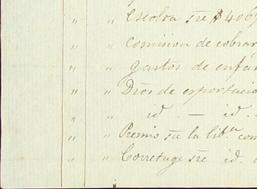 " " Escolta sre $ 4065
" " Comision de cobrar
" " Gastos de enfar
" " Dros de esportacio
" " id — id.
" " Premio sre la libta com
" " Corretage sre id